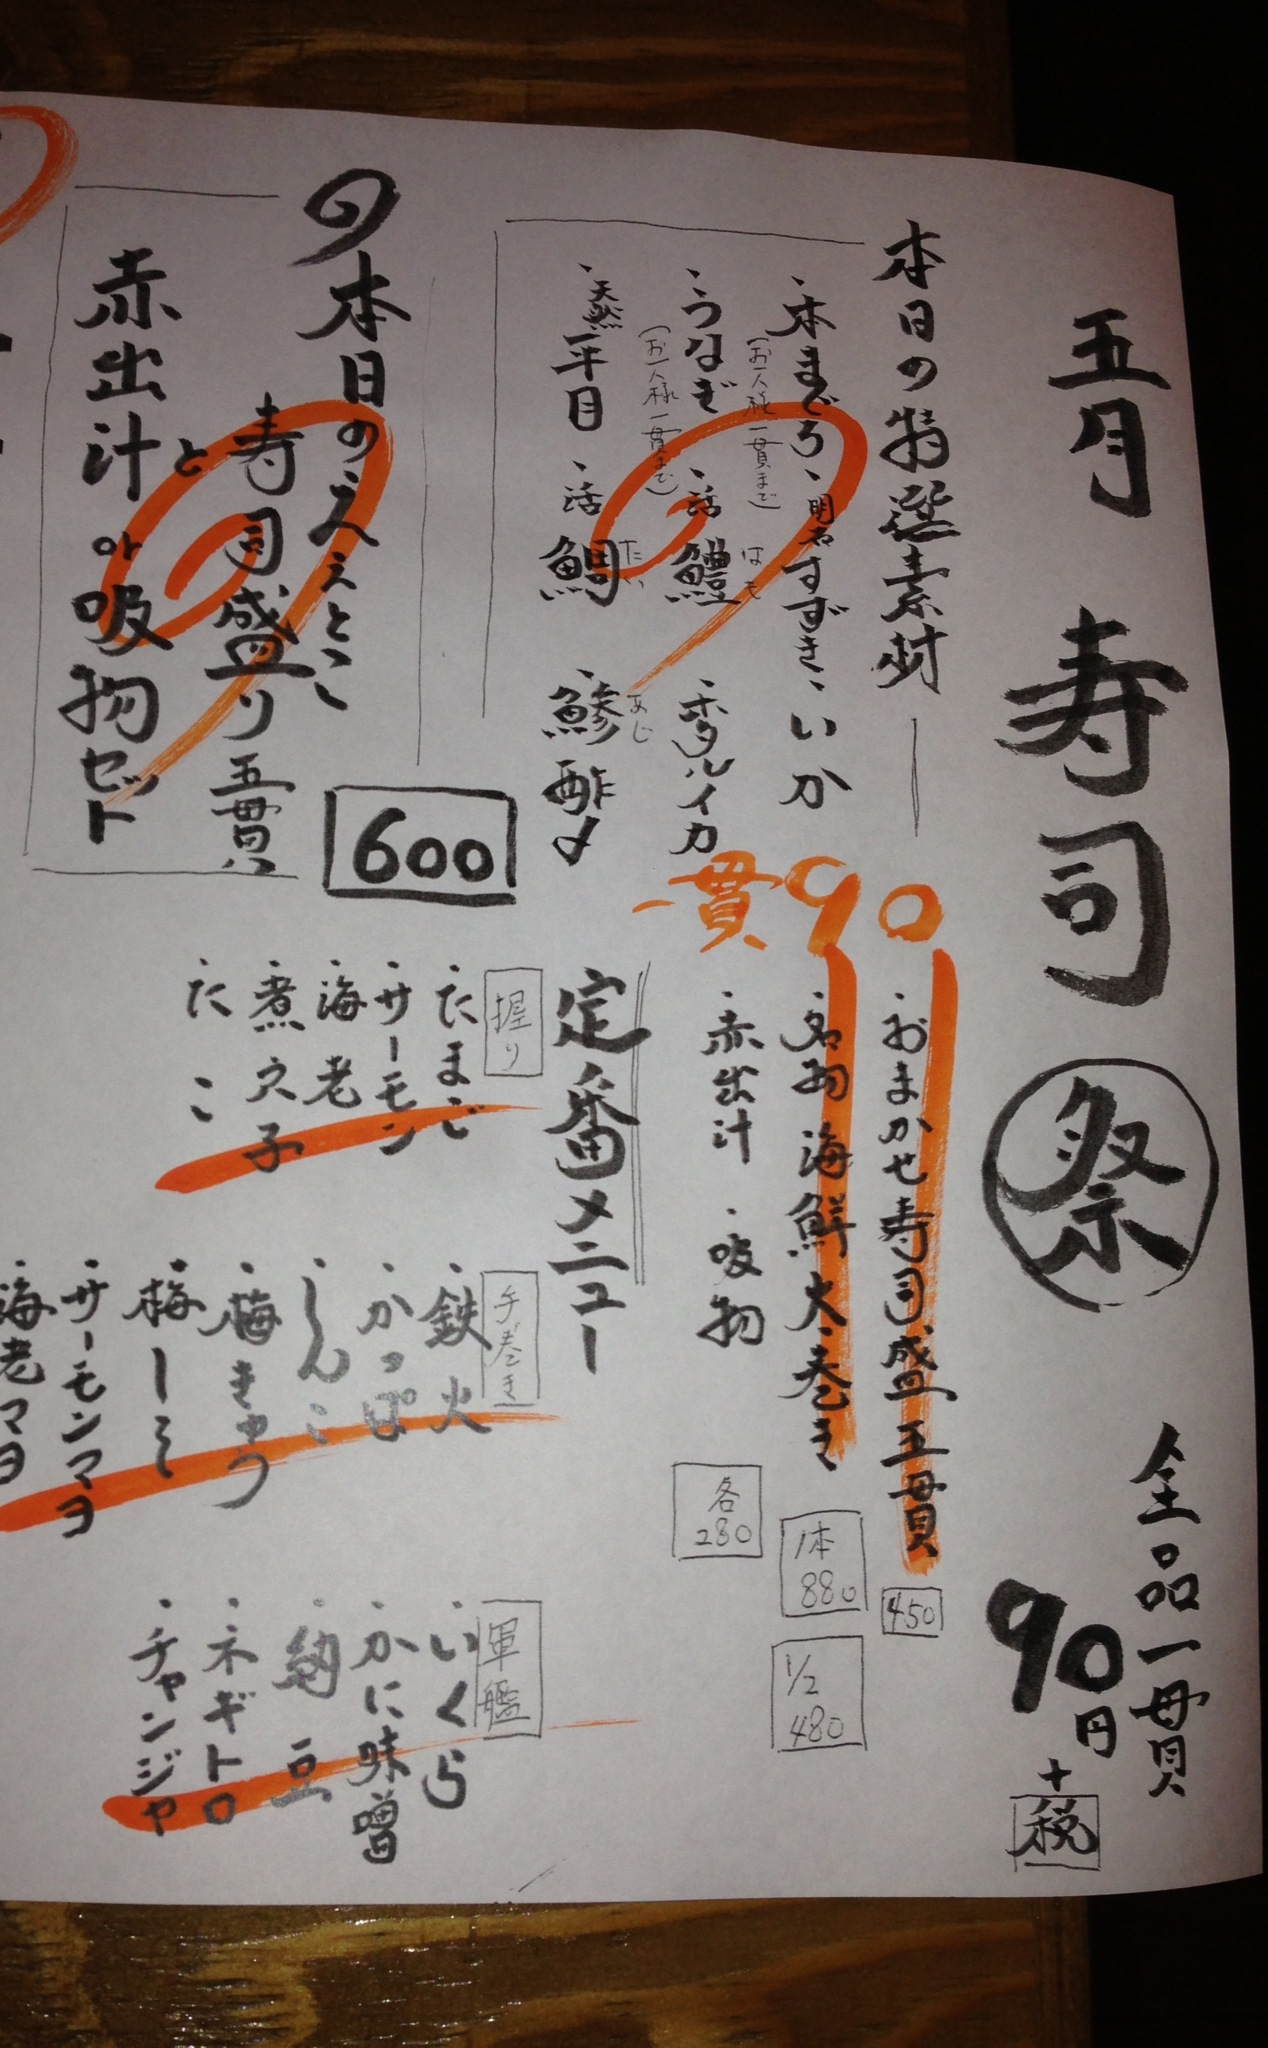 五月 寿司 祭
全品一貫
90円
+税
本日の特選素材
・本まぐろ
(お一人様一貫まで)
・明石すずき
・いか
・うなぎ
(お一人様一貫まで)
・活鱧
はも
・ホタルイカ
・天然平目
・活鯛
たい
・鯵酢〆
あじ
一貫90
・おまかせ寿司盛五貫
450
・名物 海鮮太巻き
1本
880
1/2
480
・赤出汁
・吸物
各
280
の本日のええとこ
寿司盛り五貫
と
赤出汁or吸物セット
600
定番メニュー
握り
・たまご
・サーモン
・海老
・煮穴子
・たこ
手巻き
・鉄火
・かっぱ
・しんこ
・梅きゅう
・梅しそ
・サーモンマヨ
・海老マヨ
軍艦
・いくら
・かに味噌
・納豆
・ネギトロ
・チャンジャ